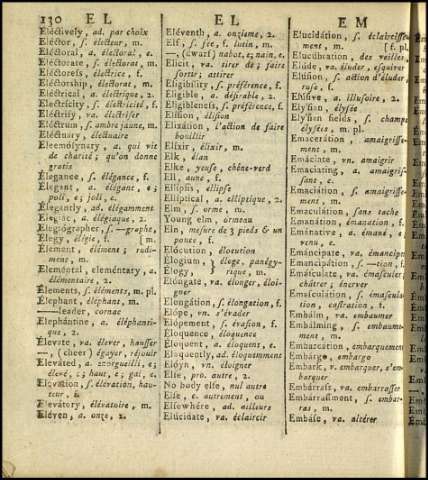 130 E L
E L
E M
Eléctively, ad. par choix
Eléctor, s. électeur, m.
Eléctoral, a. électoral, e.
Eléctorate, s. électorat, m.
Eléctoress, électrice, f.
Eléctorship, électorat, m.
Eléctrical, a. électrique, 2.
Electrícity, s. électricité, f.
Eléctrify, va. électriser
Eléctrum, s. ambre jaune, m.
Eléctuary, électuaire
Eleemósynary, a. qui vit
de charité; qu'on donne
gratis
Élegance, s. élégance, f.
Élegant, a. élégant, e;
poli, e; joli, e.
Élegantly, ad. élégamment
Elegiac, a. élégiaque, 2.
Elegiógrapher, s. —graphe,
Elegy, élégie, f. [m.
Élement, s. élément; rudi-
ment, m.
Eleméntal, eleméntary, a.
élémentaire, 2.
Élements, s. éléments, m. pl.
Élephant, éléphant, m.
——leader, cornac
Elephántine, a. éléphanti-
que, 2.
Élevate, va. élever, hausser
—, (cheer) égayer, réjouir
Elevated, a. enorgueilli, e;
élevé, e; haut, e; gai, e.
Elevátion, s. élévation, hau-
teur, f.
Elevátory, élévatoire, m.
Eléven, a. onze, 2.
Eléventh, a. onzieme, 2.
Elf, s. fée, f. lutin, m.
—, (dwarf) nabot, e; nain, e.
Elicit, va. tirer de; faire
sortir; attirer
Eligibílity, s. préférence, f.
Eligible, a. désirable, 2.
Eligibleness, s. préférence, f.
Elísion, élision
Elixátion, l'action de faire
bouillir
Elíxir, élixir, m.
Elk, élan
Elke, yeuse, chêne-verd
Ell, aune, f.
Ellípsis, ellipse
Ellíptical, a. elliptique, 2.
Elm, s. orme, m.
Young elm, ormeau
Eln, mesure de 3 pieds & un
pouce, f.
Elocútion, élocution
Elógium, } éloge, panégy-
Élogy, } rique, m.
Elóngate, va. élonger, éloi-
gner
Elongátion, s. élongation, f.
Elópe, vn. s'évader
Elópement, s. évasion, f.
Eloquence, éloquence
Eloquent, a. éloquent, e.
Eloquently, ad. éloquemment
Elóyn, vn. éloigner
Else, pro. autre, 2.
No body else, nul autre
Else, c. autrement, ou
Elsewhére, ad. ailleurs
Elúcidate, va. éclaircir
Elucidátion, s. éclaircisse-
ment, m. [f. pl.
Elucubrátion, des veilles,
Elúde, va. éluder, esquiver
Elúsion, s. action d'éluder,
ruse, f.
Elúsive, a. illusoire, 2.
Elysian, élysée
Elysian fields, s. champs
élysées, m. pl.
Emacerátion, amaigrisse-
ment, m.
Emáciate, vn. amaigrir
Emaciating, a. amaigris-
sant, e.
Emaciátion, s. amaigrisse-
ment, m.
Emaculátion, sans tache
Emanátion, émanation, f.
Emánative, a. émané, e;
venu, e.
Emáncipate, va. émanciper
Emancipátion, s. —tion, f.
Emásculate, va. émasculer,
châtrer; énerver
Emasculátion, s. émascula-
tion, castration, f.
Embálm, va. embaumer
Embálming, s. embaume-
ment, m.
Embarcátion, embarquement
Embárgo, embargo
Embárk, v. embarquer, s'em-
barquer
Embárrass, va. embarrasser
Embárrassment, s. embar-
ras, m.
Embáse, va. altérer